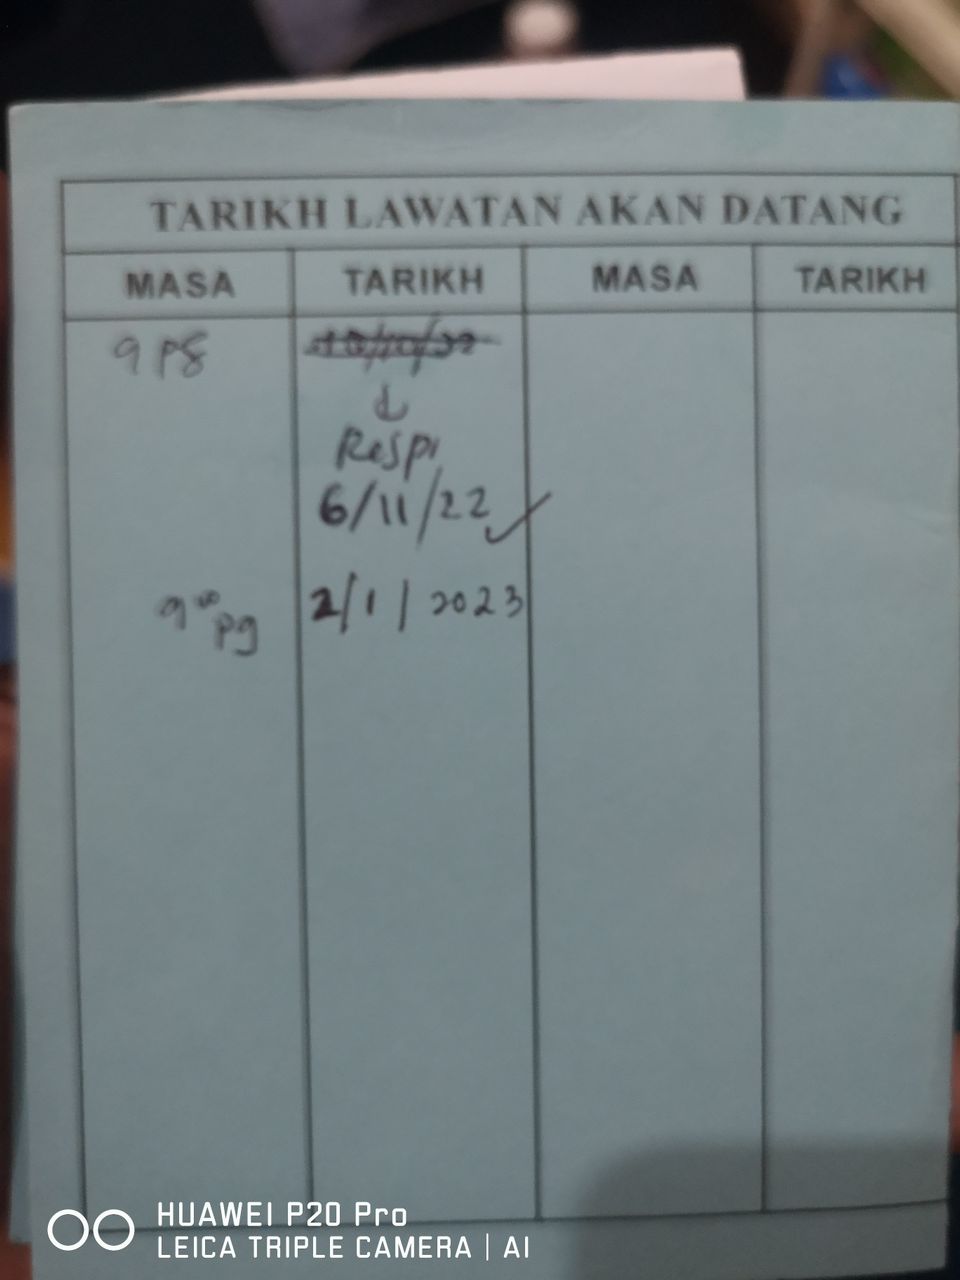 TARIKH LAWATAN AKAN DATANG
MASA TARIKH MASA TARIKH
9 pg
Respi
6/11/22
9⁰⁰ pg 2/1/2023
HUAWEI P20 Pro
LEICA TRIPLE CAMERA | AI